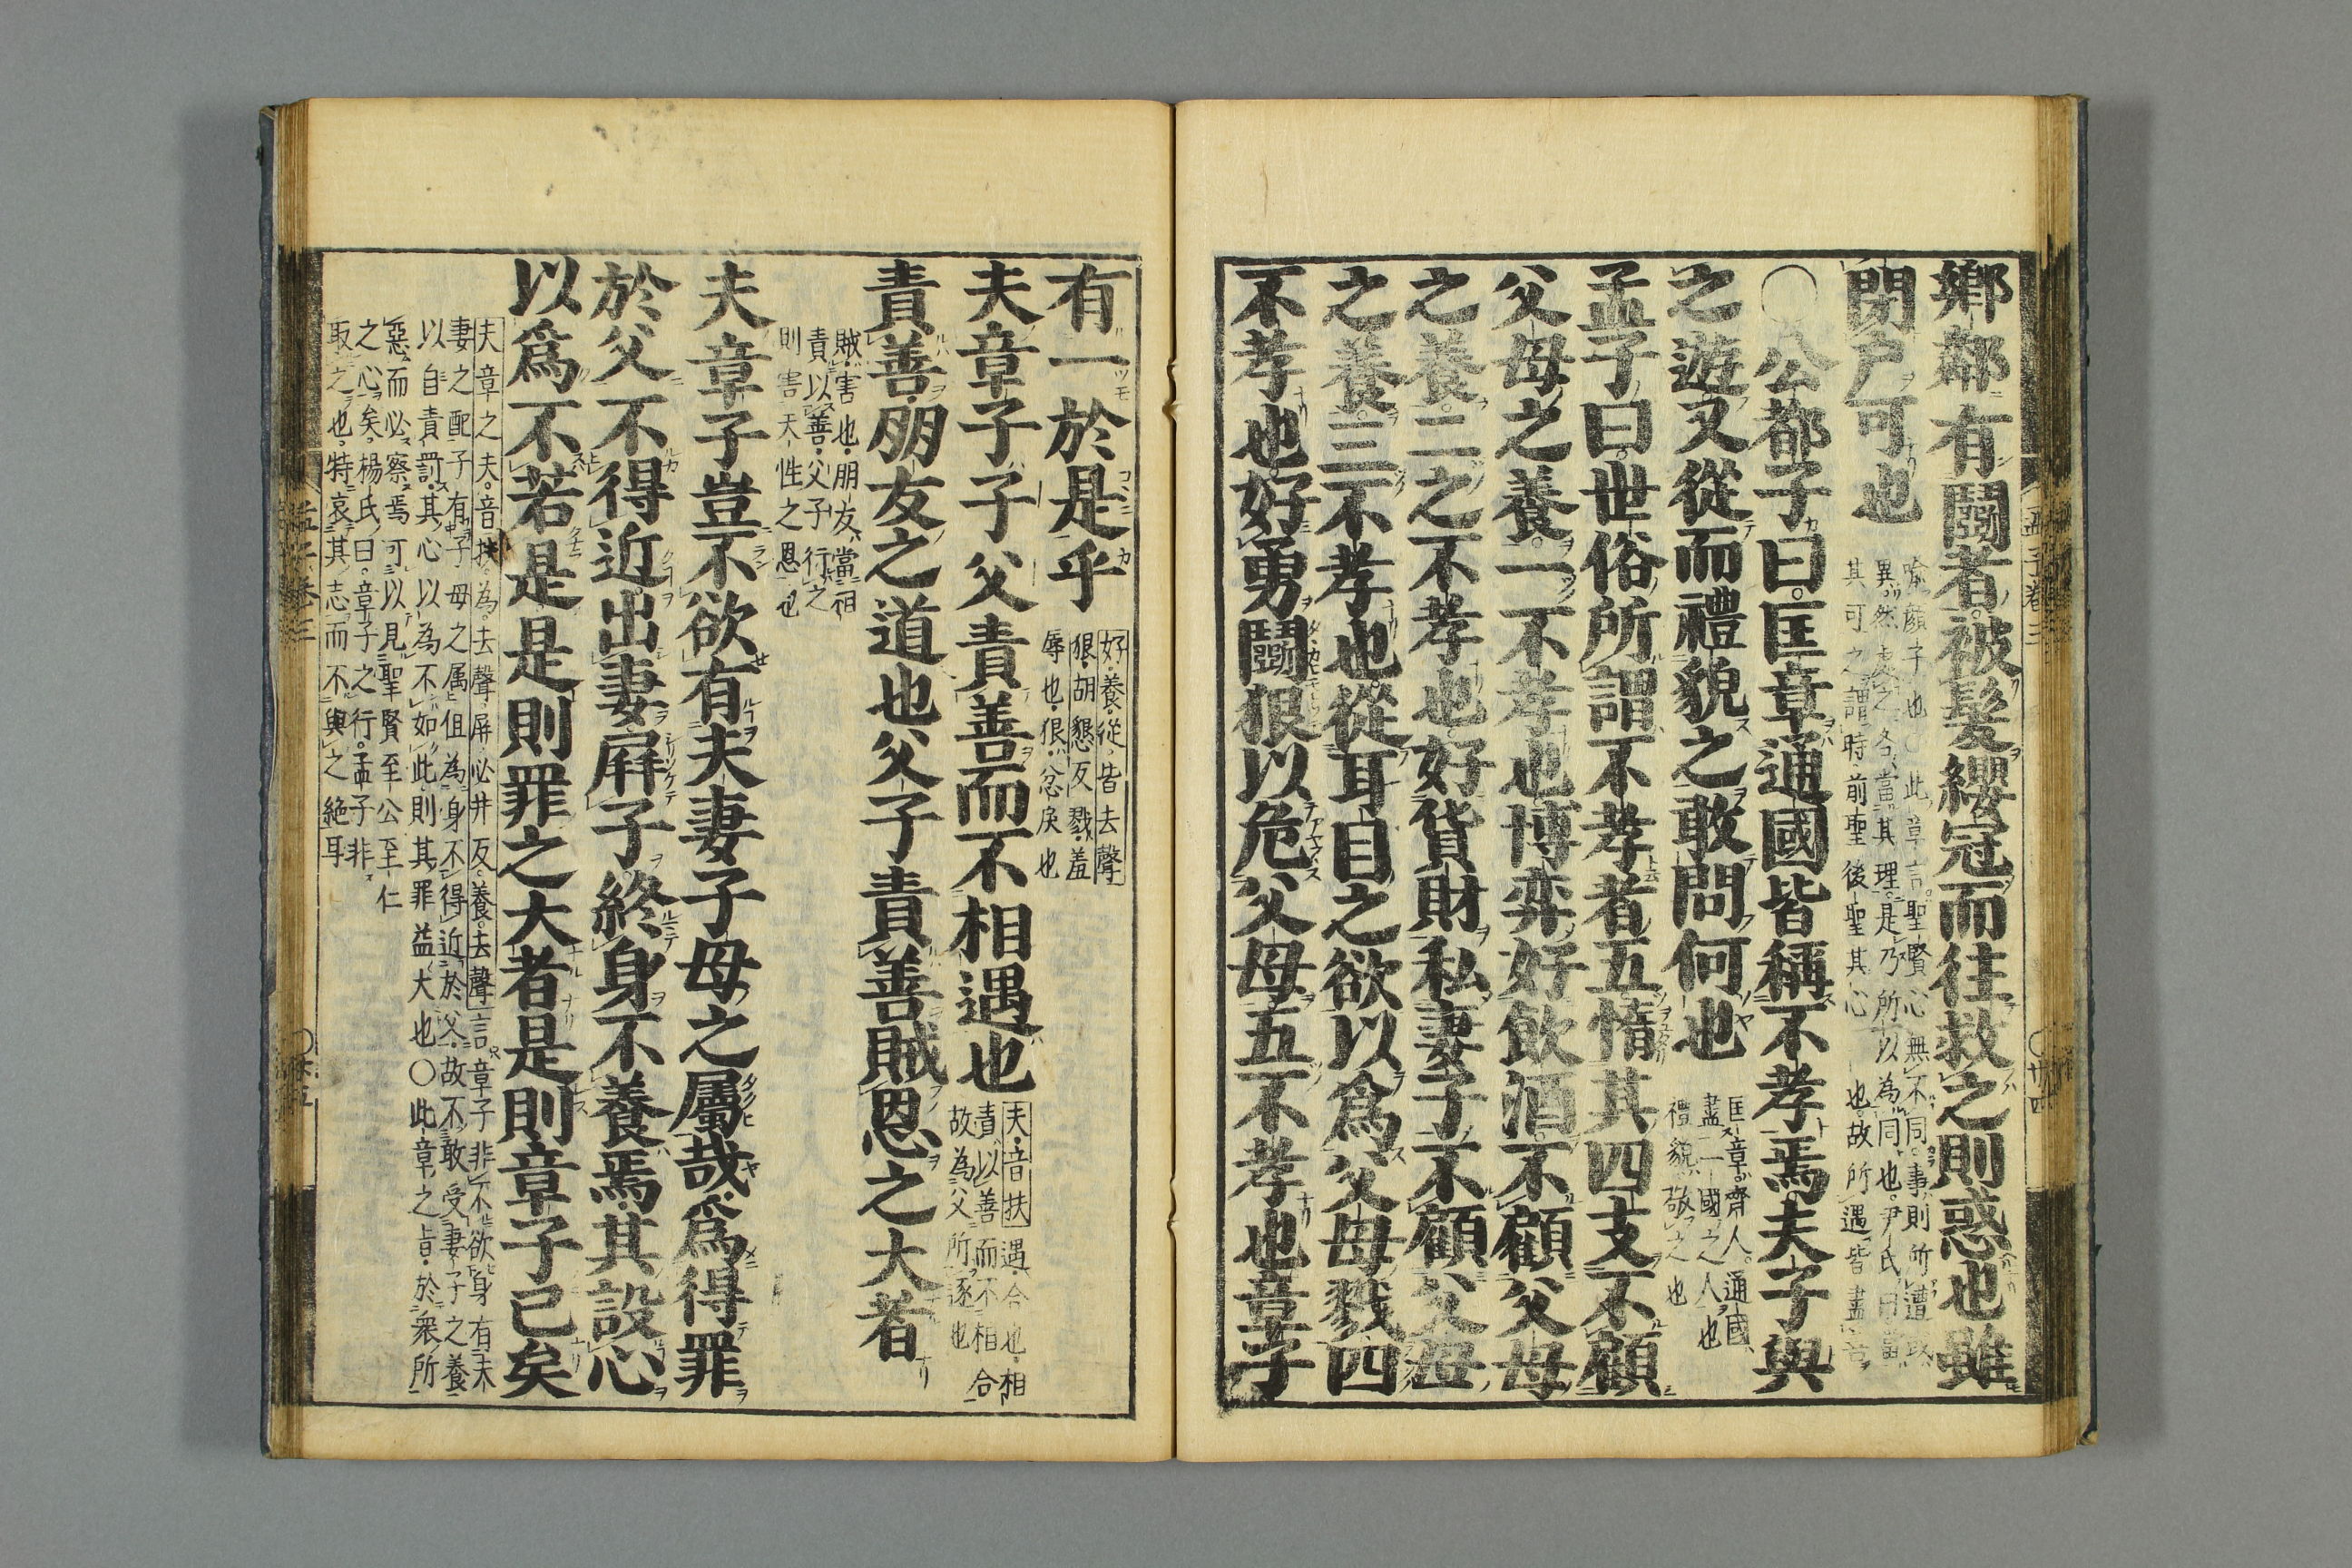 鄕鄰有鬬者被髮纓冠而往救之則惑也雖
閉戶可也
喩顏子也○此章言聖賢心無不同事則所遭或
異然處之各當其理是乃所以為同也尹氏曰當
其可之謂時前聖後聖其心一也故所遇皆盡善
○公都子曰匡章通國皆稱不孝焉夫子與
之遊又從而禮貌之敢問何也
匡章齊人通國
盡一國之人也
禮貌敬之也
孟子曰世俗所謂不孝者五惰其四支不顧
父母之養一不孝也博弈好飲酒不顧父母
之養二之不孝也好貨財私妻子不顧父母
之養三不孝也從耳目之欲以爲父母戮四
不孝也好勇鬬狠以危父母五不孝也章子
有一於是乎
好養從皆去聲
狠胡懇反戮羞
辱也狠忿戾也
夫章子子父責善而不相遇也
夫音扶遇合也相
責以善而不相合
故為父所逐也
責善朋友之道也父子責善賊恩之大者
賊害也朋友當相
責以善父子行之
則害天性之恩也
夫章子豈不欲有夫妻子母之屬哉爲得罪
於父不得近出妻屛子終身不養焉其設心
以爲不若是是則罪之大者是則章子已矣
夫章之夫音扶為去聲屏必井反養去聲言章子非不欲身有夫
妻之配子有子母之属但為身不得近於父故不敢受妻子之養
以自責罰其心以為不如此則其罪益大也○此章之旨於衆所
惡而必察焉可以見聖賢至公至仁
之心矣楊氏曰章子之行孟子非
取之也特哀其志而不與之絶耳
孟子卷三
○廿四